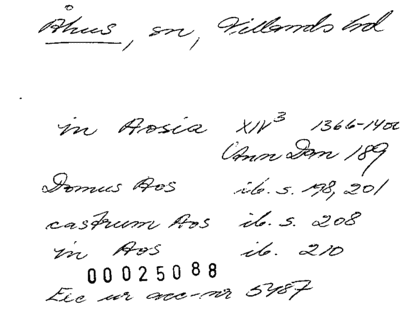 Åhus, sn, Villands hd
in Aosia XIV³ 1366-1400
(Ann Dan 189
Domus Aos ib. s. 198, 201
castrum Aos ib. s. 208
in Aos ib. 210
00025088
Exc ur acc-nr 5487